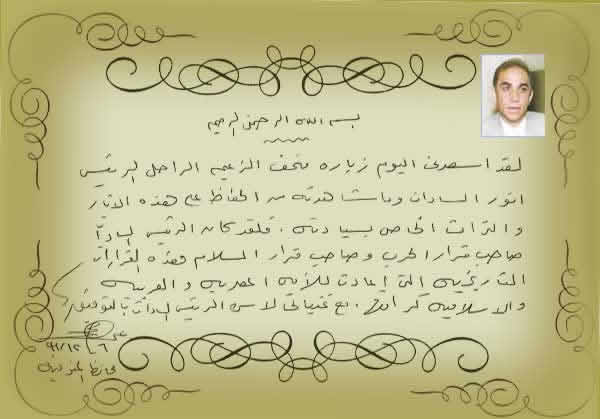 بسم الله الرحمن الرحيم
لقد اسعدنى اليوم زيارة متحف الزعيم الراحل الرئيس
انور السادات وما شاهدته من الحفاظ على هذه الاثار
والتراث الخاص بسيادته . فلقد كان الرئيس السادات
صاحب قرار الحرب وصاحب قرار السلام وهذه القرارات
التاريخية التى اعادت للأمه المصرية والعربية
والاسلامية كرامتها . مع تمنياتى لاسرة الرئيس السادات بالتوفيق
٦
محافظ المنوفية